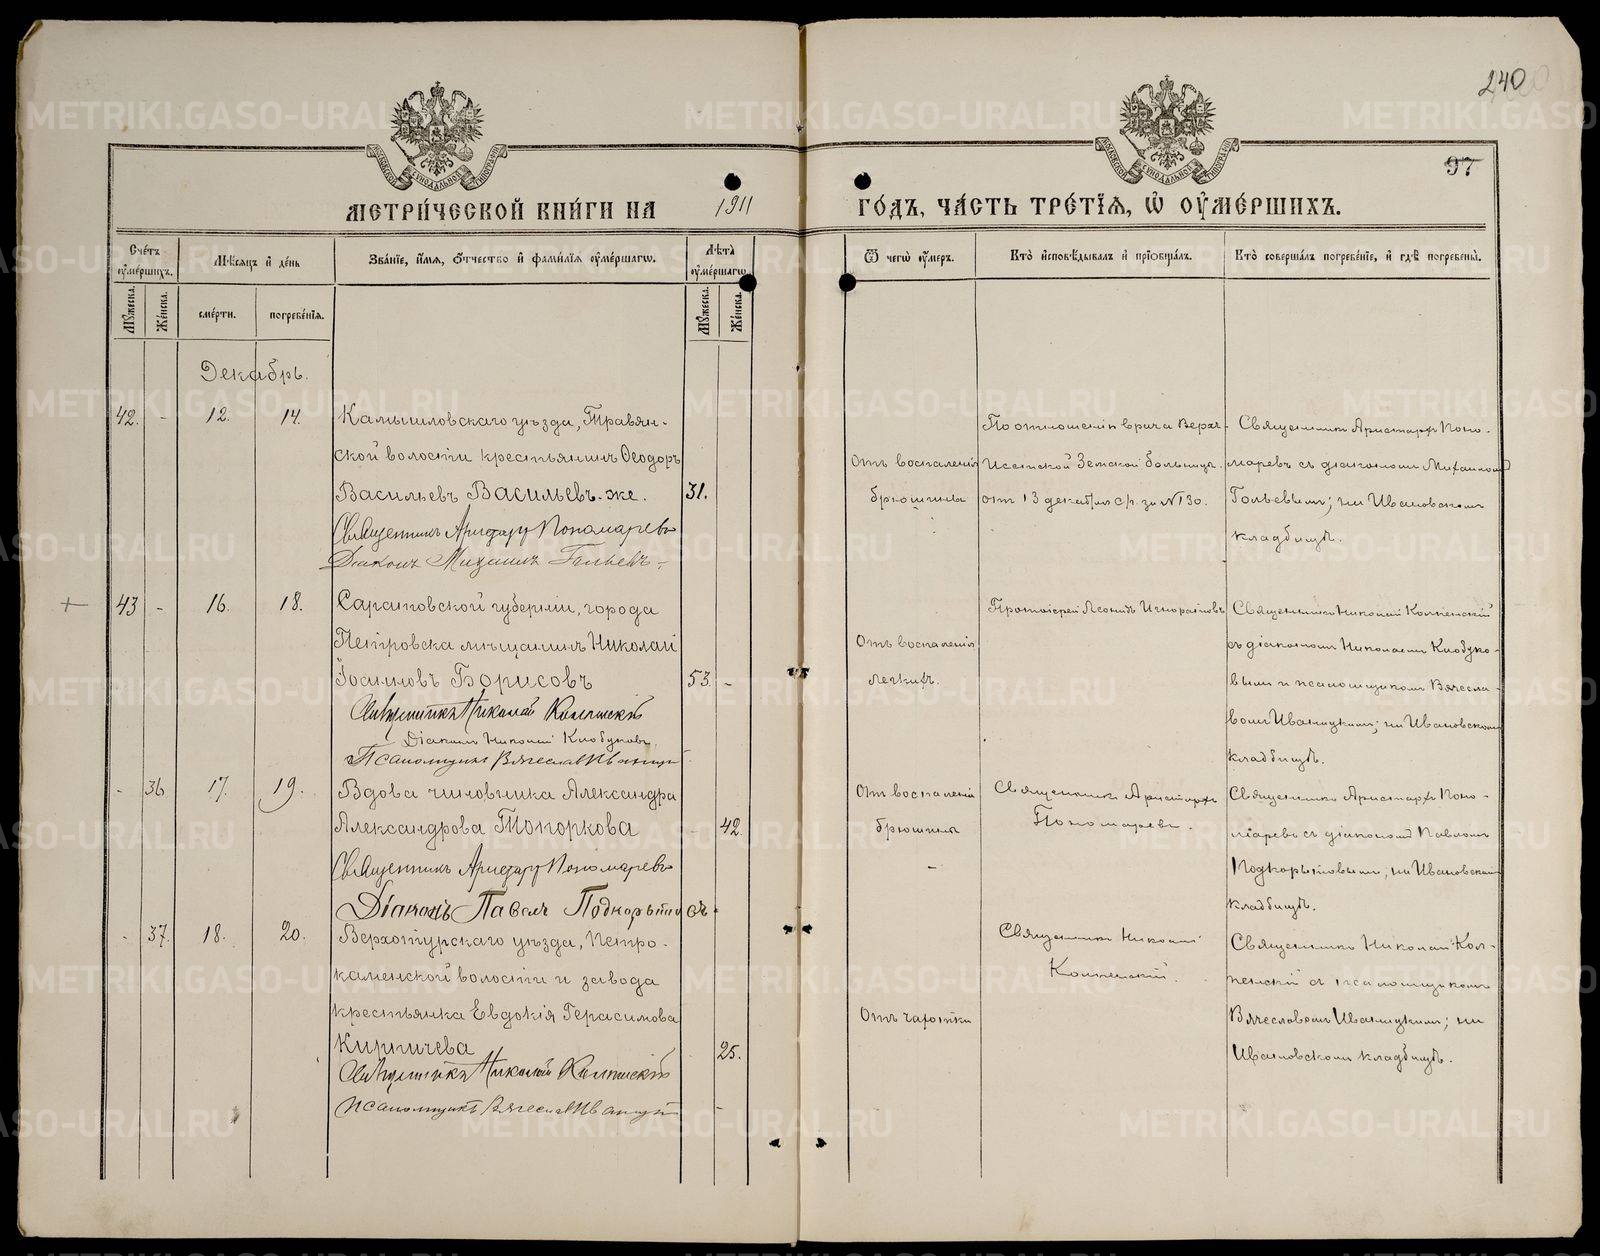 240
97
МЕТРИ́ЧЕСКОЙ КНИ́ГИ НА 1911 ГО́ДЪ, ЧА́СТЬ ТРЕ́ТІЯ, Ѡ ОУ҆МЕ́РШИХЪ.
Сче́тъ оу҆ме́ршихъ.
Мѣсяцъ и҆ де́нь
Зва́ніе, и҆́мя, ѻ҆́тчество и҆ фами́лія оу҆ме́ршагѡ.
Лѣ́та оу҆ме́ршагѡ
Ѿ чегѡ̀ оу҆́меръ.
Кто̀ и҆сповѣ́дывалъ и҆ пріѡбща́лъ.
Кто̀ соверша́лъ погребе́ніе, и҆ гдѣ̀ погребены̀.
Мꙋ́жеска.
Же́нска.
сме́рти.
погребе́нія.
Мꙋ́жеска.
Же́нска.
Декабрь.
42. - 12. 14.
Камышловскаго уѣзда, Травян-
ской волости крестьянинъ Ѳеодоръ
Васильевъ Васильевъ-же. 31.
Священникъ Аристархъ Пономаревъ
Діаконъ Михаилъ
Отъ воспаленія
брюшины
По отношенію врача Верхъ-
Исетской Земской больницы
отъ 13 декабря с/г. за № 130.
Священникъ Аристархъ Поно-
маревъ съ діакономъ Михаиломъ
на Ивановскомъ
кладбищѣ.
43 - 16. 18.
Саратовской губерніи, города
Петровска мѣщанинъ Николай
Іоанновъ Борисовъ 53. -
Священникъ Николай
Діаконъ Николай Клобуковъ
Псаломщикъ Вячеславъ Иваницкій
Отъ воспаленія
легкихъ.
Протоіерей Леонидъ Игноратовъ
Священникъ Николай
съ діакономъ Николаемъ Клобуко-
вымъ и псаломщикомъ Вячесла-
вомъ Иваницкимъ; на Ивановскомъ
кладбищѣ.
- 36 17. 19.
Вдова чиновника Александра
Александрова Топоркова - 42.
Священникъ Аристархъ Пономаревъ
Діаконъ Павелъ Подкорытовъ.
Отъ воспаленія
брюшины
-
Священникъ Аристархъ
Пономаревъ.
Священникъ Аристархъ Поно-
маревъ съ діакономъ Павломъ
Подкорытовымъ, на Ивановскомъ
кладбищѣ.
- 37. 18. 20.
Верхотурскаго уѣзда, Петро-
каменской волости и завода
крестьянка Евдокія Герасимова
Киргичева 25.
Священникъ Николай
Псаломщикъ Вячеславъ Иваницкій
Отъ чахотки
Священникъ Николай
Священникъ Николай
съ псаломщикомъ
Вячеславомъ Иваницкимъ; на
Ивановскомъ кладбищѣ.
METRIKI.GASO-URAL.RU